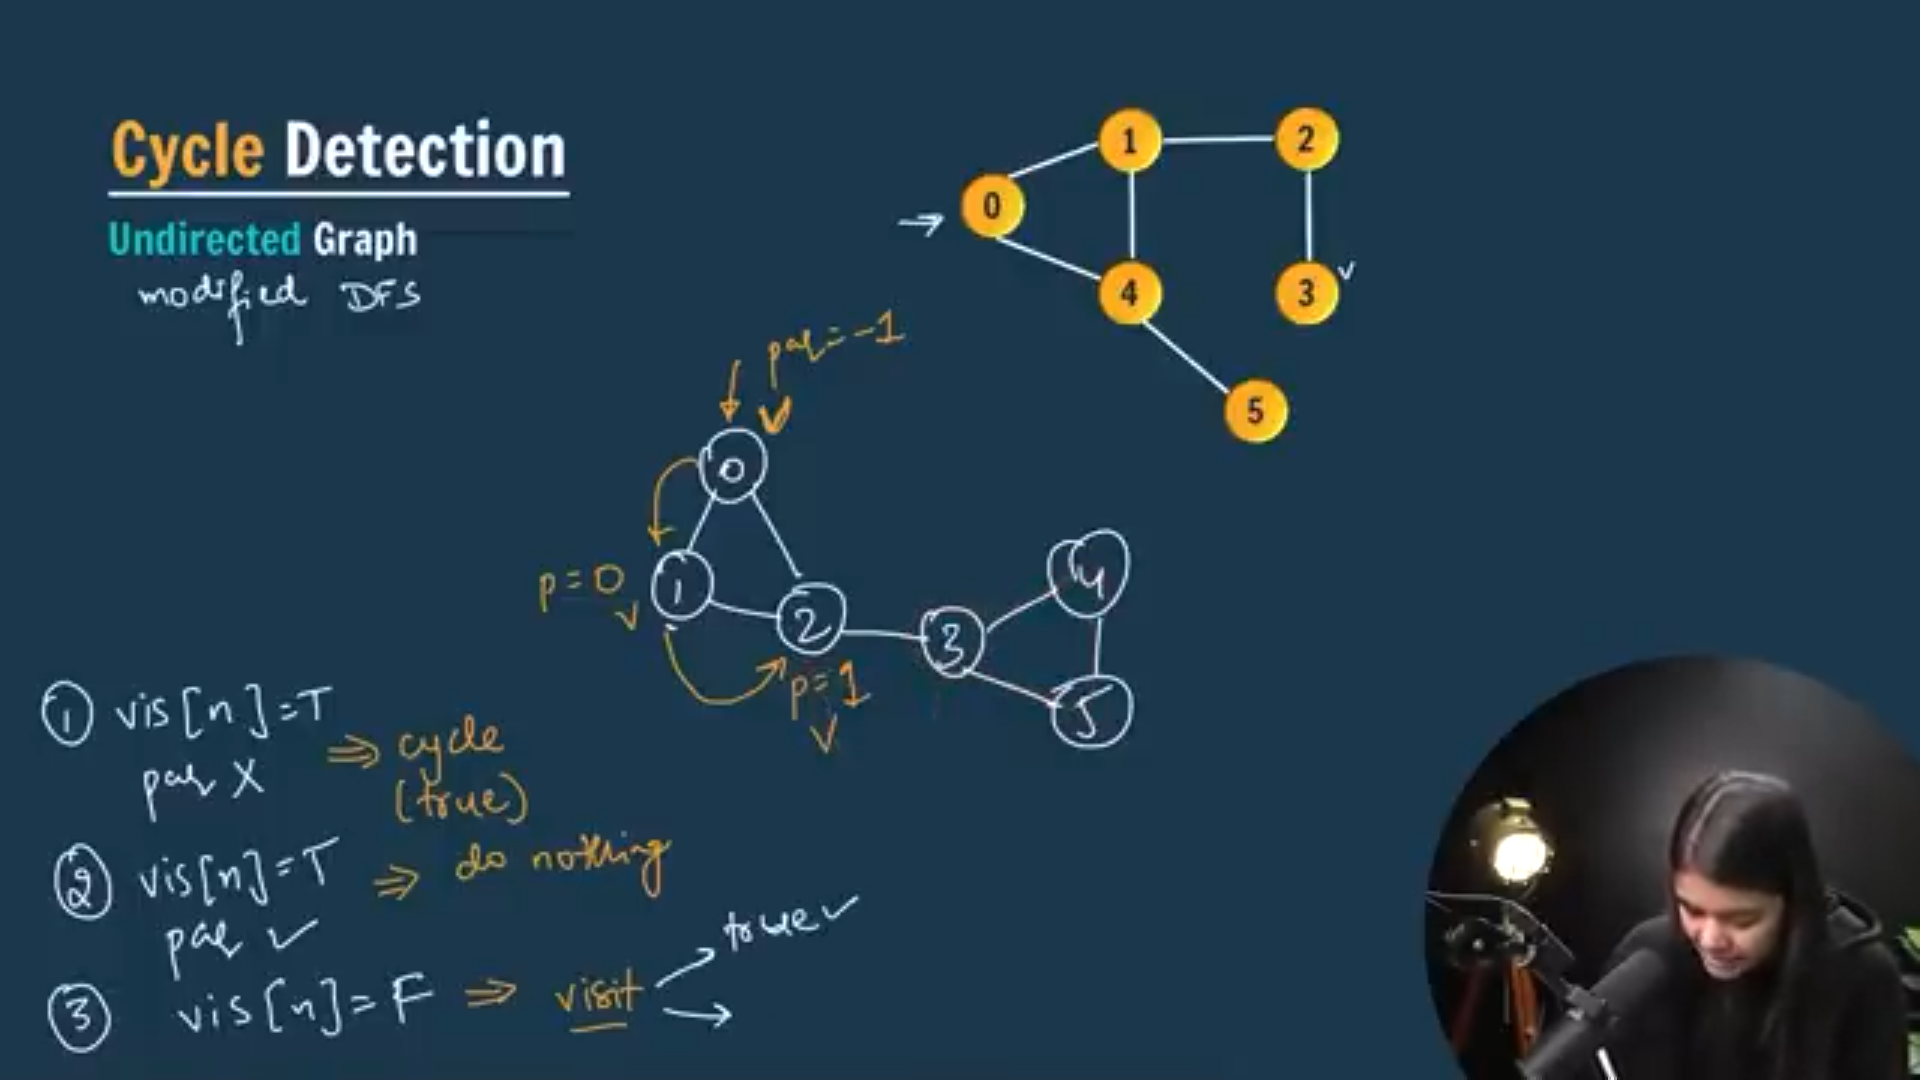 Cycle Detection
Undirected Graph
modified DFS
0
1
2
3
4
5
v
par=-1
v
0
1
2
3
4
5
p=0
v
p=1
v
① vis[n]=T
par X
⇒ cycle
(true)
② vis[n]=T
par ✓
⇒ do nothing
③ vis[n]=F ⇒ visit
→ true ✓
→